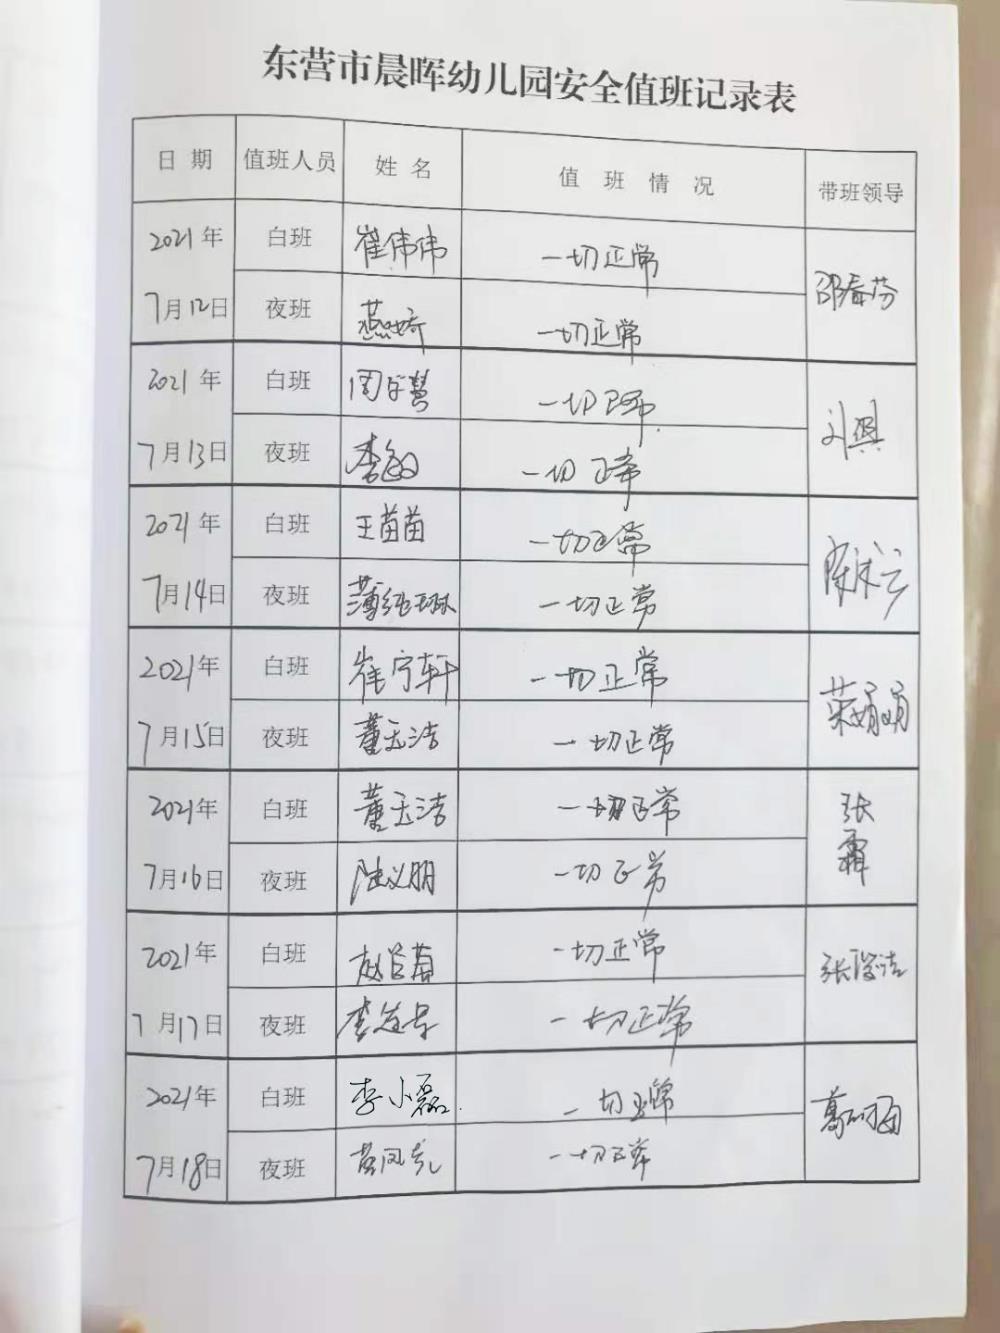 东营市晨晖幼儿园安全值班记录表
日期 值班人员 姓名 值班情况 带班领导
2021年 白班 崔伟伟 一切正常
邵春芬
7月12日 夜班 燕娇 一切正常
2021年 白班 一切正常
刘
7月13日 夜班 李敏 一切正常
2021年 白班 王苗苗 一切正常
7月14日 夜班 薄纯琳 一切正常
2021年 白班 崔宁轩 一切正常
荣娟娟
7月15日 夜班 董玉洁 一切正常
2021年 白班 董玉洁 一切正常
张霜
7月16日 夜班 陆义朋 一切正常
2021年 白班 赵 一切正常
张
7月17日 夜班 李 一切正常
2021年 白班 李小磊 一切正常
葛
7月18日 夜班 黄凤 一切正常